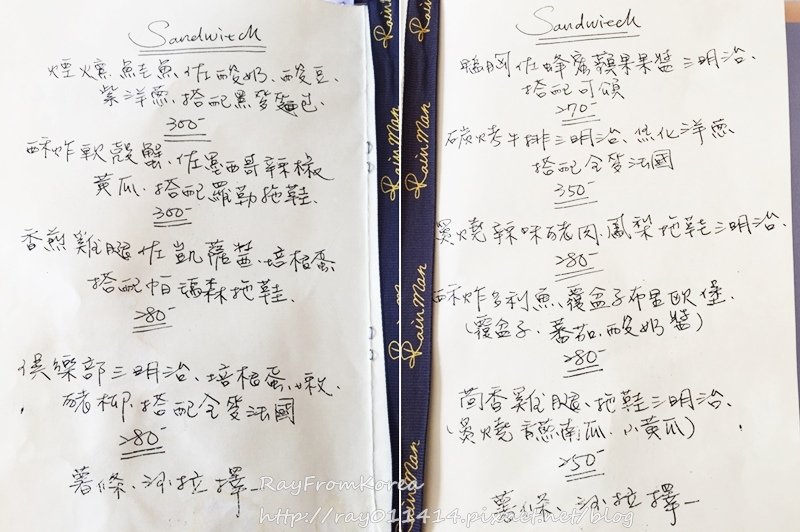 Sandwich
煙燻鮭魚佐酸奶、酸豆、
紫洋蔥、搭配黑麥麵包
300-
酥炸軟殼蟹、佐墨西哥辣椒
黃瓜、搭配羅勒拖鞋
300-
香煎雞腿佐凱薩醬、培根蛋
搭配帕瑪森拖鞋
280-
俱樂部三明治、培根蛋、嫩
豬柳、搭配全麥法國
280-
薯條、沙拉擇一
Sandwich
鴨胸佐蜂蜜蘋果果醬三明治、
搭配可頌
270-
碳烤牛排三明治、焦化洋蔥、
搭配全麥法國
350-
炭燒辣味豬肉、鳳梨拖鞋三明治、
280-
酥炸多利魚、覆盆子布里歐堡、
(覆盆子、蕃茄、酸奶醬)
280-
茴香雞腿、拖鞋三明治、
(炭燒南瓜、小黃瓜)
250-
薯條、沙拉擇一
Rain Man
Rain Man
Rain Man
Rain Man
RayFromKorea
http://ray011414.pixnet.net/blog